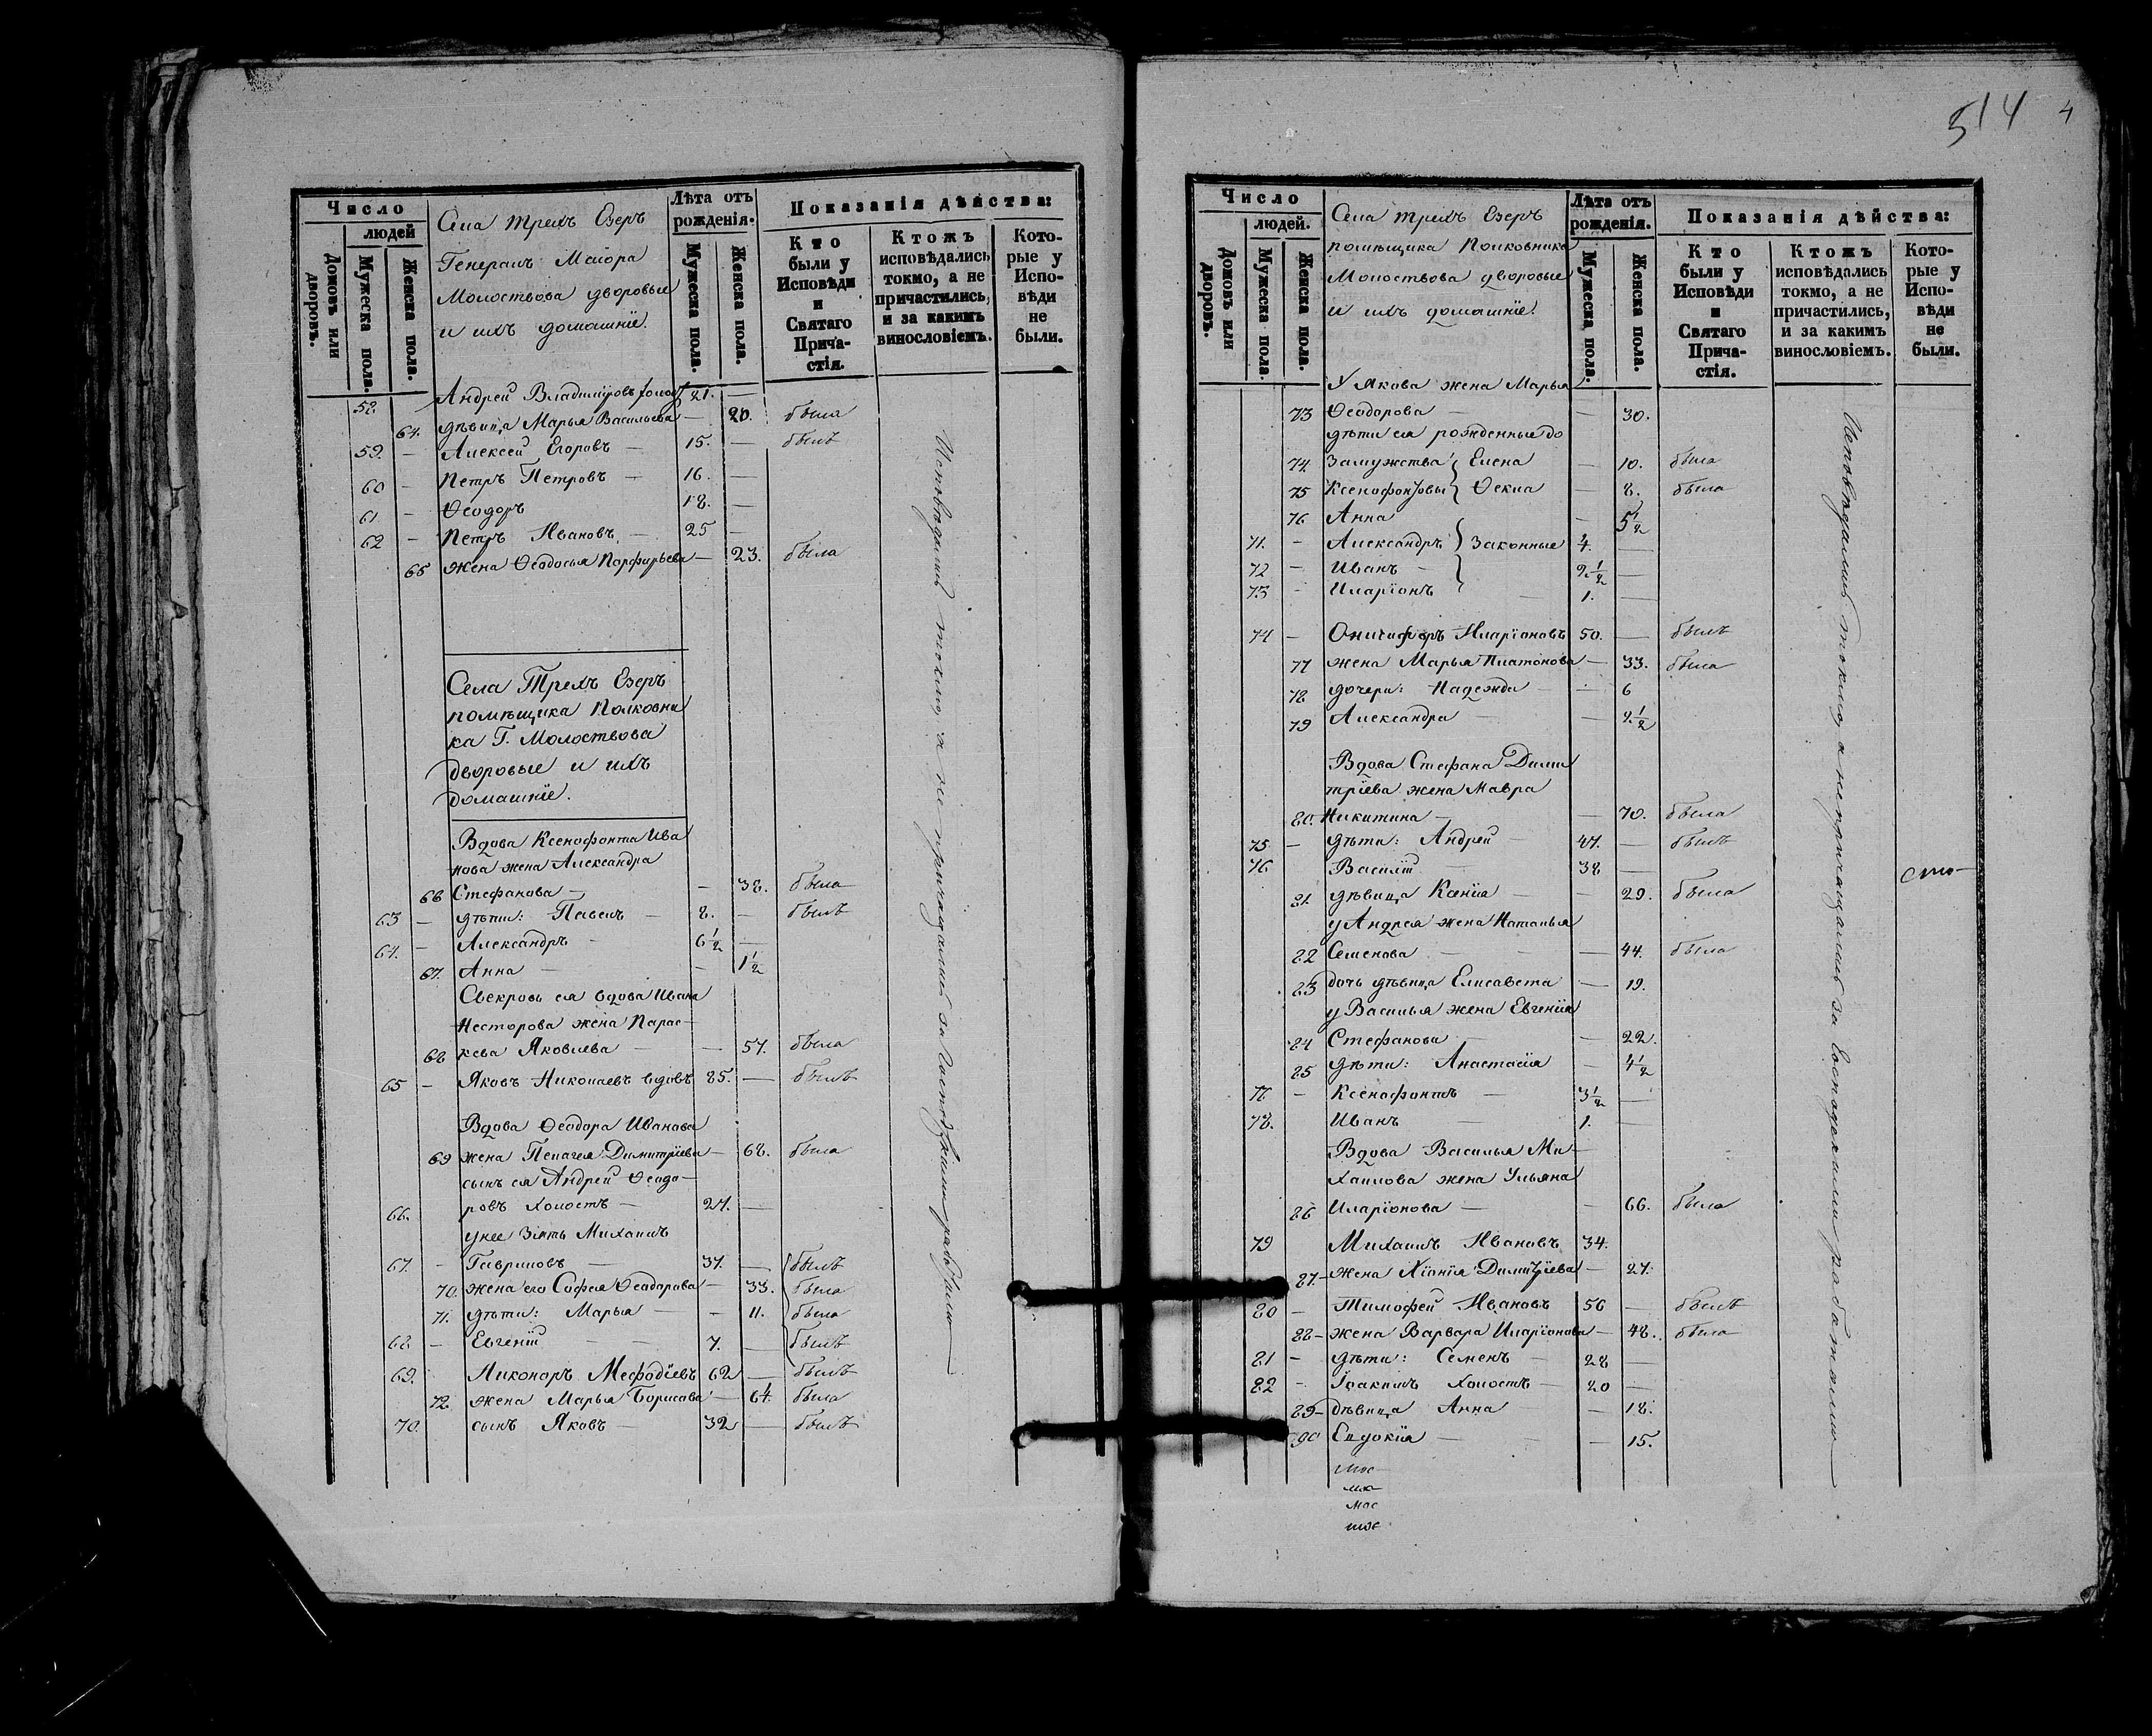 Число
людей
Домовъ или дворовъ.
Мужеска пола.
Женска пола.
Села Трехъ Езеръ
Генералъ Маіора
Молоствова дворовые
и ихъ домашніе.
Лѣта отъ рожденія.
Мужеска пола.
Женска пола.
Показанія дѣйства:
Кто были у Исповѣди и Святаго Причастія.
Ктожъ исповѣдались токмо, а не причастились, и за какимъ винословіемъ.
Которые у Исповѣди не были.
58. Андрей Владиміровъ холост 21. —
64. дѣвица Марья Васильева — 20. была
59. — Алексей Егоровъ — 15. — былъ
60 — Петръ Петровъ — 16. —
61 — Ѳеодоръ 18. —
62 — Петръ Ивановъ — 25 —
65 жена Ѳеодосья Порфирьева — 23. была
Села Трехъ Езеръ
помѣщика Полковни
ка Г. Молоствова
дворовые и ихъ
домашніе.
Вдова Ксенофонта Ива
нова жена Александра
66 Стефанова — — 38. была
63 — дѣти: Павелъ — 8. — былъ
64. — Александръ — 6 1/2 —
67. Анна — — 1 1/2
Свекровь ея вдова Ивана
Несторова жена Парас-
68 кева Яковлева — — 57. была
65 — Яковъ Николаевъ вдовъ 85. — былъ
Вдова Ѳеодора Иванова
69 жена Пелагея Димитріева — 68. была
сынъ ея Андрей Ѳеодо-
66. ровъ холостъ — 27. —
у нее зять Михаилъ
67. — Гавриловъ — 37. — былъ
70. жена его Софья Ѳеодорова — 33. была
71. дѣти: Марья — — 11. была
68 — Евгеній — — 7. — былъ
69. Никоноръ Меѳодіевъ 62 — былъ
72. жена Марья Борисова — 64. была
70. сынъ Яковъ — 32 — былъ
Исповѣдались токмо, а не причащались за Господскими работами —
514 4
Число
людей.
Домовъ или дворовъ.
Мужеска пола.
Женска пола.
Села Трехъ Езеръ
помѣщика Полковника
Молоствова дворовые
и ихъ домашніе.
Лѣта отъ рожденія.
Мужеска пола.
Женска пола.
Показанія дѣйства:
Кто были у Исповѣди и Святаго Причастія.
Ктожъ исповѣдались токмо, а не причастились, и за какимъ винословіемъ.
Которые у Исповѣди не были.
У Якова жена Марья
73 Ѳеодорова — — 30.
дѣти ея рожденные до
74. замужства Елена — 10. была
75 Ксенофонтовы Ѳекла — 8. была
76 Анна — 5 1/2
71. — Александръ законные 4. —
72 — Иванъ — 2 1/2 —
73 — Иларіонъ — 1. —
74 — Онисифоръ Иларіоновъ 50. — былъ
77 жена Марья Платонова — 33. была
78 дочери: Надежда — — 6
79 Александра — — 2 1/2
Вдова Стефана Дими
тріева жена Мавра
80. Никитина — — 70. была
75 — дѣти: Андрей — 47. — былъ
76 Василій — 38 —
81 дѣвица Ксенія — — 29. была
у Андрея жена Наталья
82 Семенова — — 44. была
83 дочь дѣвица Елисавета — 19.
у Василья жена Евгенія
84 Стефанова — — 22.
85 дѣти: Анастасія — 4 1/2
77 — Ксенофонтъ — 3 1/2 —
78. Иванъ — 1. —
Вдова Василья Ми-
хаилова жена Ульяна
86 Иларіонова — — 66. была
79 Михаилъ Ивановъ 34.
87. — жена Хіонія Димитріева — 27.
80 — Тимофей Ивановъ 56 — былъ
88 — жена Варвара Иларіонова — 48. была
81 — дѣти: Семенъ — 28 —
82 — Іоакимъ холостъ — 20 —
89 — дѣвица Анна — — 18.
90 Евдокія — — 15.
Исповѣдались токмо, а не причащались за Господскими работами —